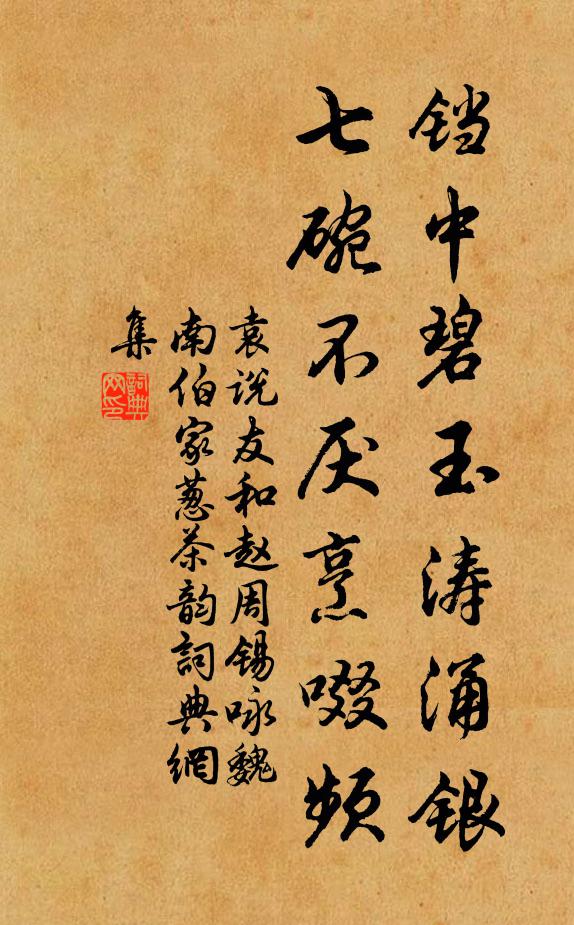 铛中碧玉涛涌银
七碗不厌烹啜频
袁说友和赵周锡咏魏
南伯家葱茶韵詞典網
集
詞典
网印